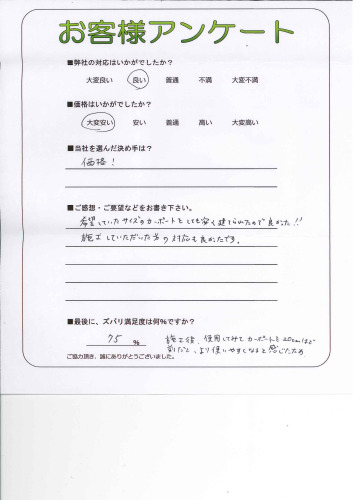 お客様アンケート
■弊社の対応はいかがでしたか?
大変良い 良い 普通 不満 大変不満
■価格はいかがでしたか?
大変安い 安い 普通 高い 大変高い
■当社を選んだ決め手は?
価格!
■ご感想・ご要望などをお書き下さい。
希望していたサイズのカーポートとても安く建てられたので良かった!!
施工していただいた方の対応も良かったです。
■最後に、ズバリ満足度は何%ですか?
75 %
施工後、使用してみてカーポートを20cmほど
前だと、より使いやすくなると感じたため
ご協力頂き、誠にありがとうございました。